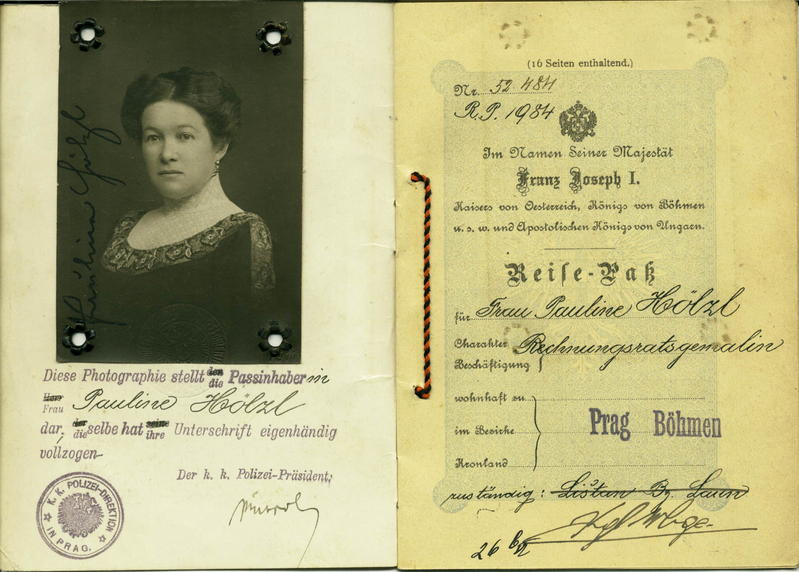 Paulina Hölzl
Diese Photographie stellt den
die Passinhaberin
Herr
Frau Pauline Hölzl
dar, der
die selbe hat seine
ihre Unterschrift eigenhändig
vollzogen
Der k. k. Polizei-Präsident:
K. K. POLIZEI-DIREKTION
IN PRAG.
(16 Seiten enthaltend.)
Nr. 52484
R.P. 1984
Im Namen Seiner Majestät
Franz Joseph I.
Kaisers von Oesterreich, Königs von Böhmen
u. s. w. und Apostolischen Königs von Ungarn.
Reise-Paß
für Frau Pauline Hölzl
Charakter
Beschäftigung Rechnungsratsgemalin
wohnhaft zu
im Bezirke Prag Böhmen
Kronland
zuständig: Lištan Bz. Laun